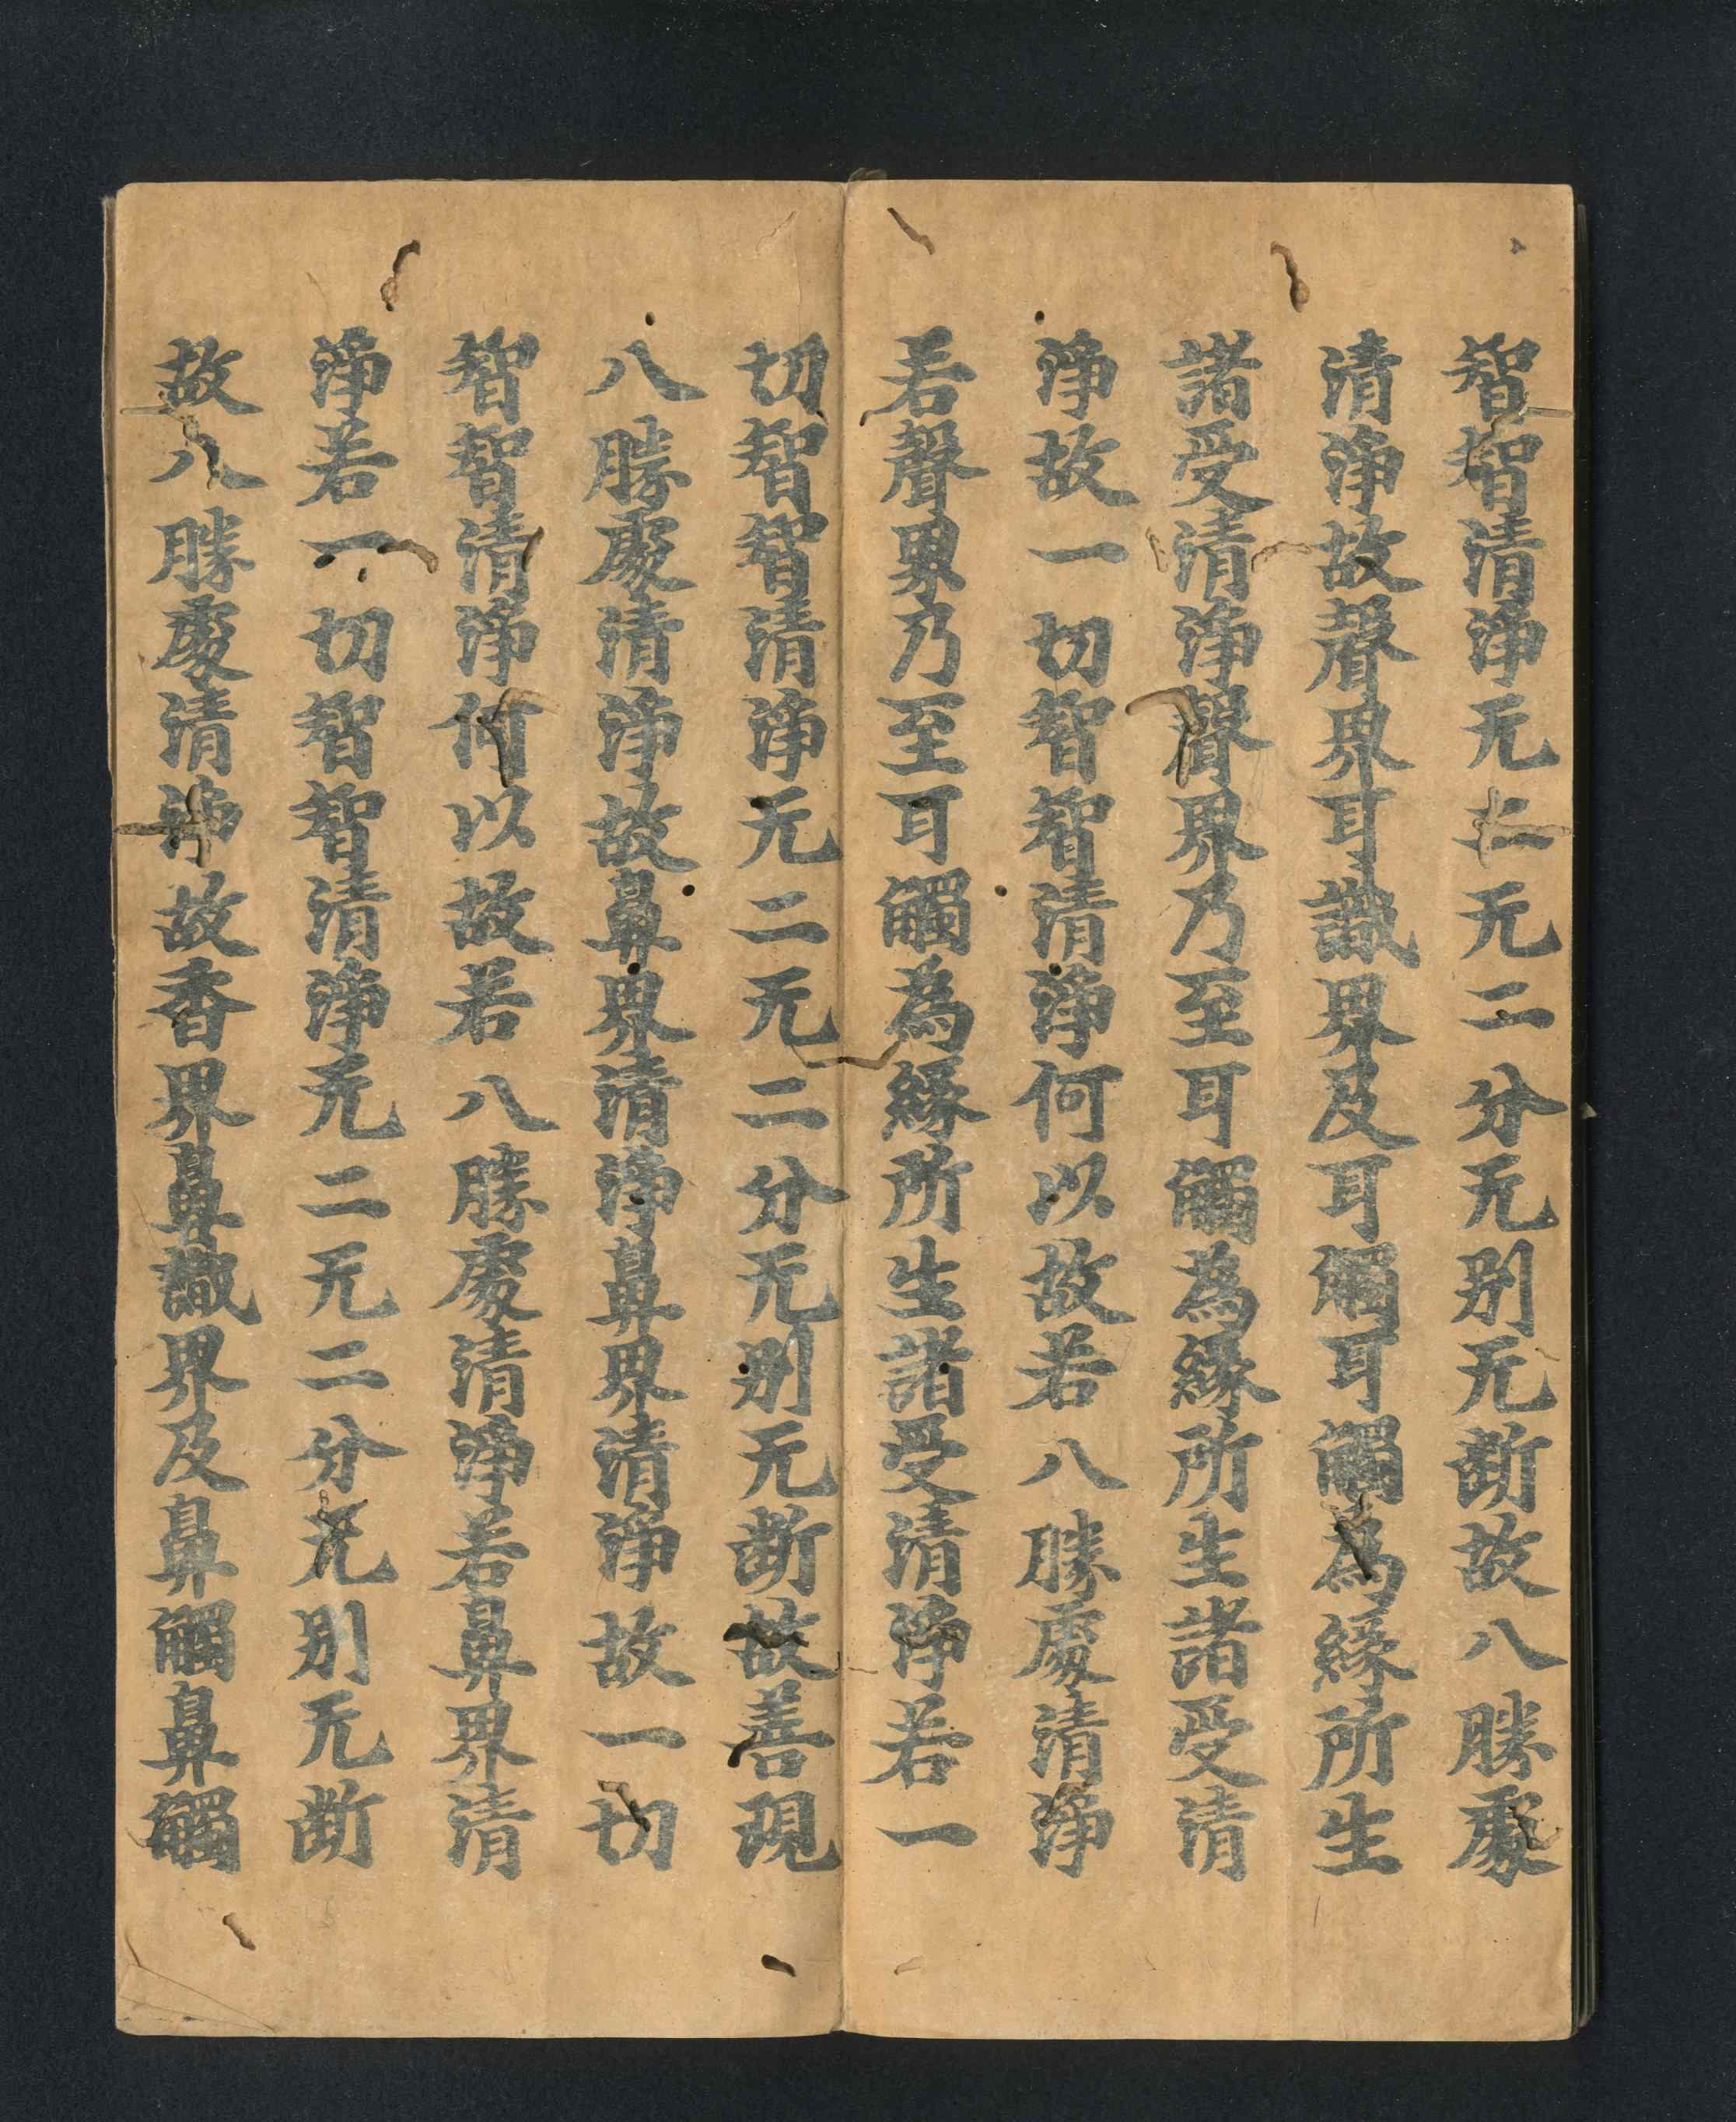 智智清淨无二无二分无别无断故八勝處
清淨故聲界耳識界及耳觸耳觸為緣所生
諸受清淨聲界乃至耳觸為緣所生諸受清
淨故一切智智清淨何以故若八勝處清淨
若聲界乃至耳觸為緣所生諸受清淨若一
切智智清淨无二无二分无别无断故善現
八勝處清淨故鼻界清淨鼻界清淨故一切
智智清淨何以故若八勝處清淨若鼻界清
淨若一切智智清淨无二无二分无别无断
故八勝處清淨故香界鼻識界及鼻觸鼻觸